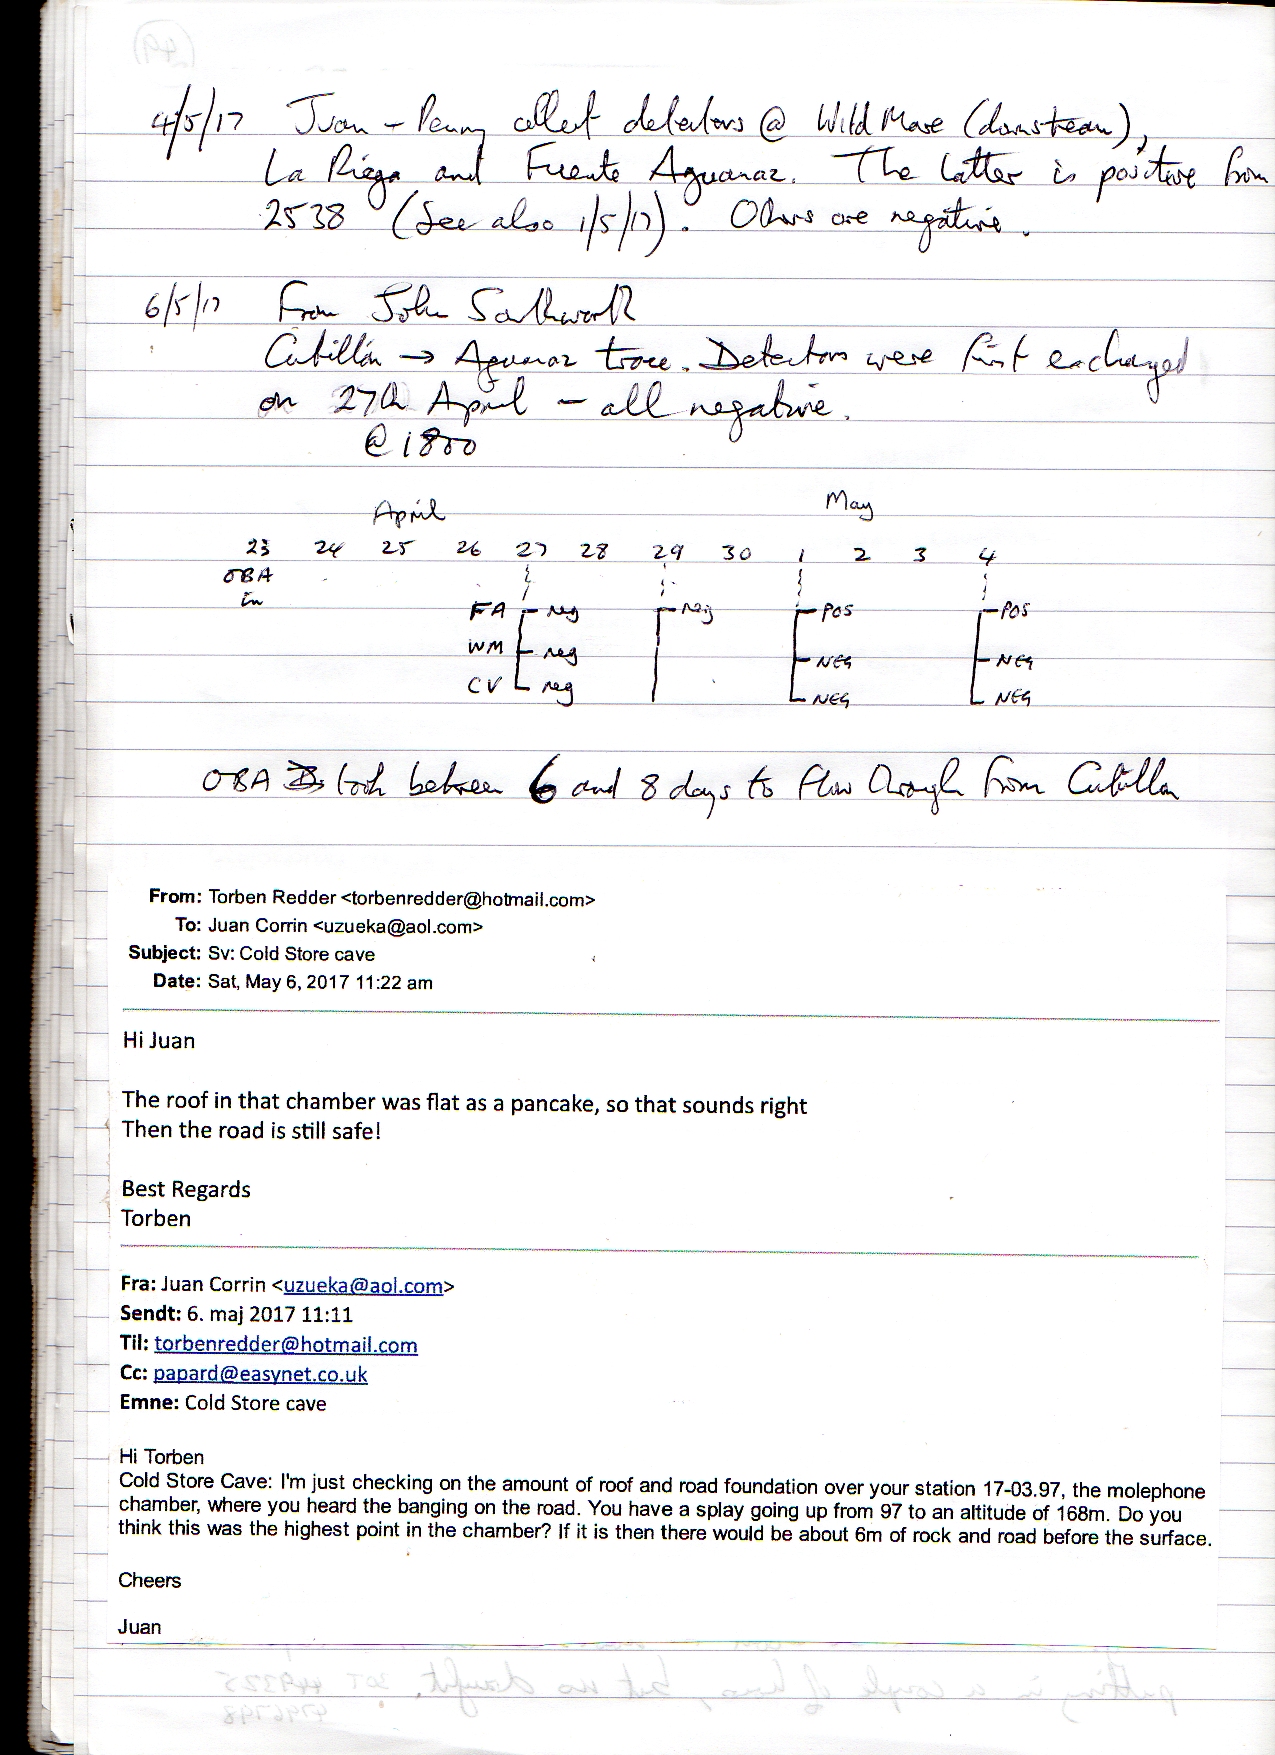 4/5/17 Juan + Penny collect detectors @ Wild Mare (downstream),
La Riega and Fuente Aguanaz. The latter is positive from
2538 (See also 1/5/17). Others are negative.
6/5/17 From John Southworth
Cubillón → Aguanaz trace. Detectors were first exchanged
on 27th April – all negative.
@ 1800
April May
23 24 25 26 27 28 29 30 1 2 3 4
OBA
in
FA neg neg POS POS
WM neg NEG NEG
CV neg NEG NEG
OBA took between 6 and 8 days to flow through from Cubillon
From: Torben Redder <torbenredder@hotmail.com>
To: Juan Corrin <uzueka@aol.com>
Subject: Sv: Cold Store cave
Date: Sat, May 6, 2017 11:22 am
Hi Juan
The roof in that chamber was flat as a pancake, so that sounds right
Then the road is still safe!
Best Regards
Torben
Fra: Juan Corrin <uzueka@aol.com>
Sendt: 6. maj 2017 11:11
Til: torbenredder@hotmail.com
Cc: papard@easynet.co.uk
Emne: Cold Store cave
Hi Torben
Cold Store Cave: I'm just checking on the amount of roof and road foundation over your station 17-03.97, the molephone
chamber, where you heard the banging on the road. You have a splay going up from 97 to an altitude of 168m. Do you
think this was the highest point in the chamber? If it is then there would be about 6m of rock and road before the surface.
Cheers
Juan